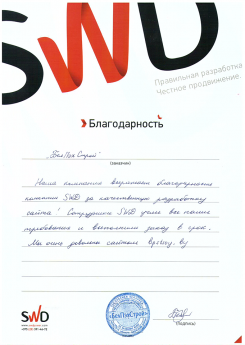 SWD
Правильная разработка
Честное продвижение
Благодарность
„БелТехСтрой"
(заказчик)
Наша компания выражает благодарность
компании SWD за качественную разработку
сайта! Сотрудники SWD учли все наши
требования и выполнили заказ в срок.
Мы очень довольны сайтом
SWD
(подпись)